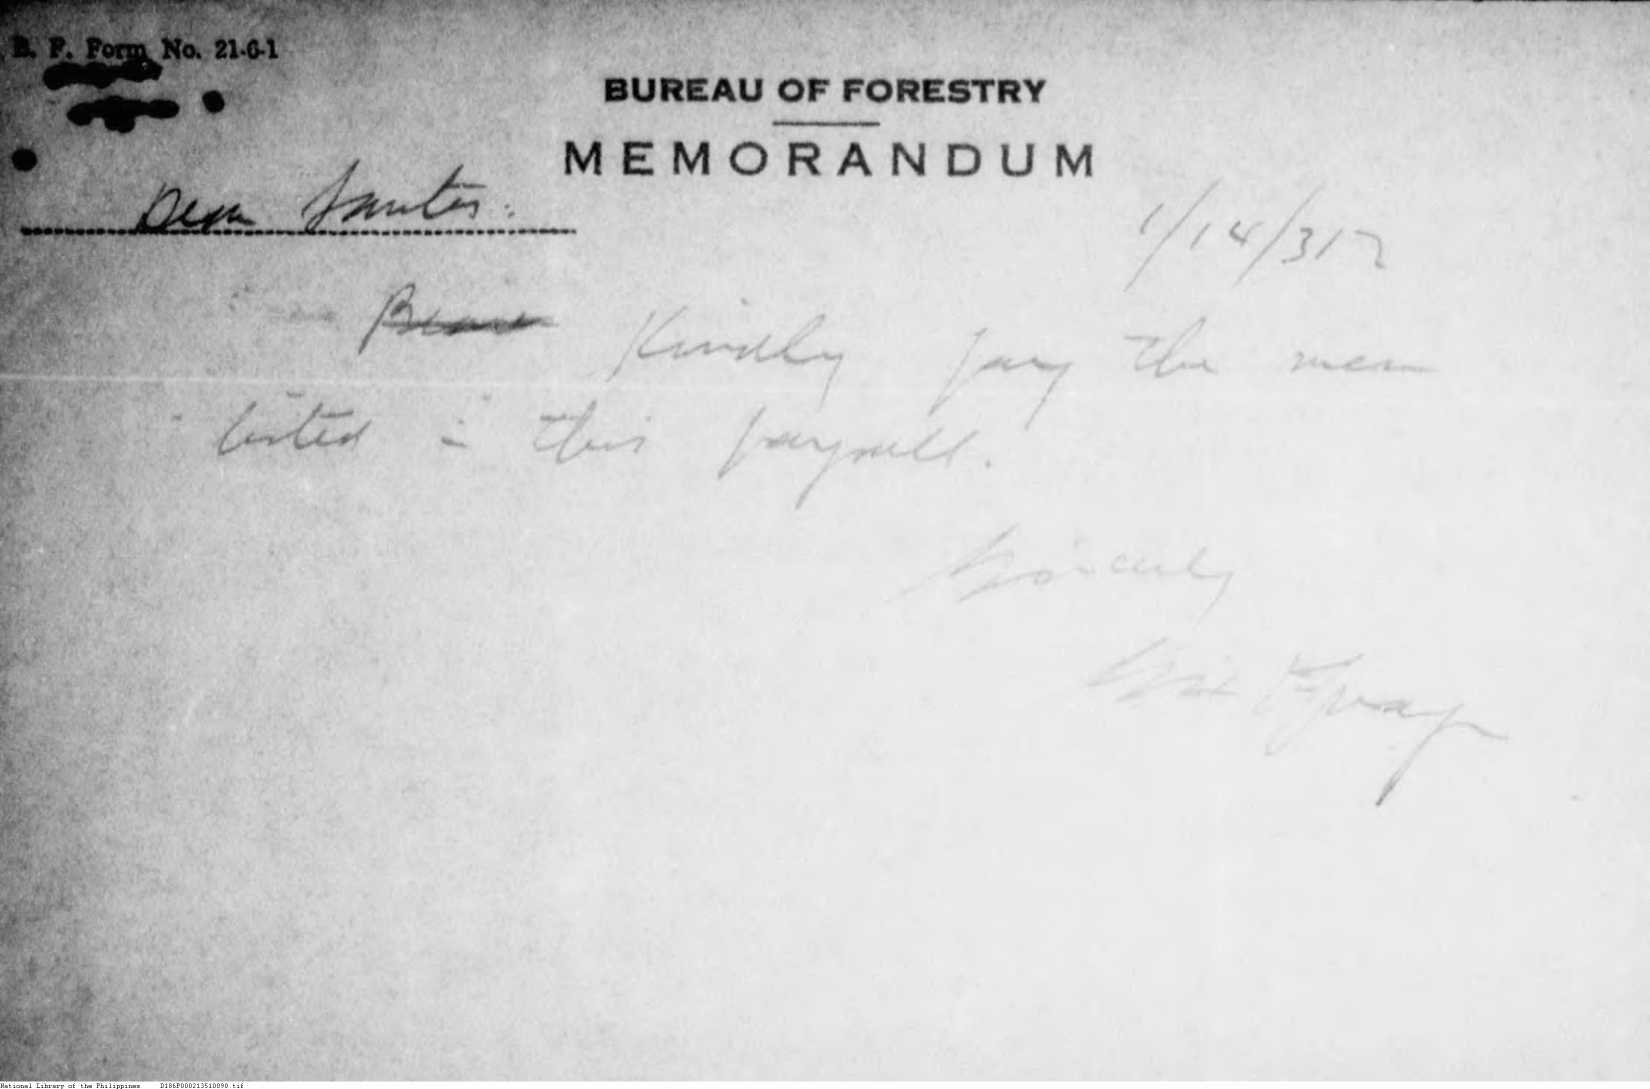 B. F. Form No. 21-6-1
BUREAU OF FORESTRY
MEMORANDUM
Dear Santos:
1/14/31
Kindly pay the men
listed in this payroll.
Sincerely
National Library of the Philippines D186P000213510090.tif